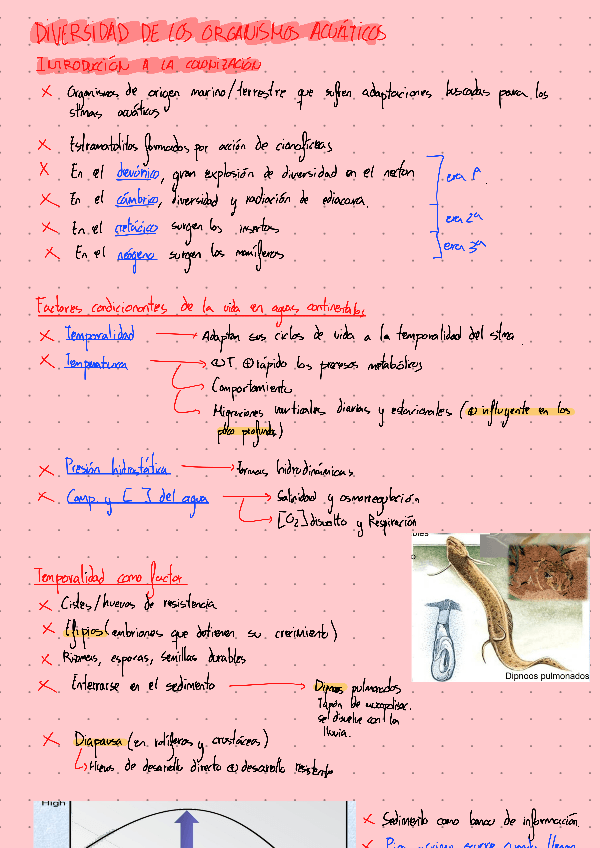 DIVERSIDAD DE LOS ORGANISMOS ACUÁTICOS
INTRODUCCIÓN A LA COLONIZACIÓN
x Organismos de origen marino/terrestre que sufren adaptaciones buscadas para los
stmas acuáticos
x Estramatolitos formados por acción de cianofíceas
x En el devónico, gran explosión de diversidad en el necton
era 1ª
x En el cámbrico, diversidad y radiación de ediacara.
era 2ª
x En el cretácico surgen los insectos
x En el neógeno surgen los mamíferos
era 3ª
Factores condicionantes de la vida en aguas continentales
x Temporalidad → Adaptan sus ciclos de vida a la temporalidad del stma.
x Temperatura → ⊕T ⊕rápido los procesos metabólicos
→ Comportamiento
→ Migraciones verticales diarias y estacionales (⊕ influyente en los
poco profundos)
x Presión hidrostática → formas hidrodinámicas
x Comp. y [ ] del agua → Salinidad y osmorregulación
→ [O₂] disuelto y Respiración
Temporalidad como factor
x Cistes/huevos de resistencia
x Efipios (embriones que detienen su crecimiento)
x Rizomas, esporas, semillas durables
x Enterrarse en el sedimento → Dipnoos pulmonados
Tapón de mucopolisac.
se disuelve con la
lluvia.
Dipnoos pulmonados
x Diapausa (en rotíferos y crustáceos)
↳ Huevos de desarrollo directo ⊕ desarrollo resistente
High
x Sedimento como banco de información